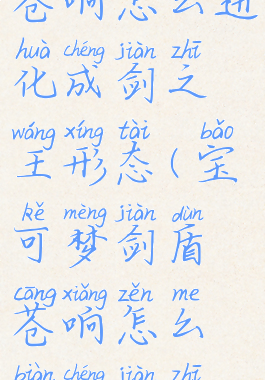 苍响怎么进
huà chéng jiàn zhī
化成剑之
wáng xíng tài bǎo
王形态(宝
kě mèng jiàn dùn
可梦剑盾
cāng xiǎng zěn me
苍响怎么
biàn chéng jiàn zhī